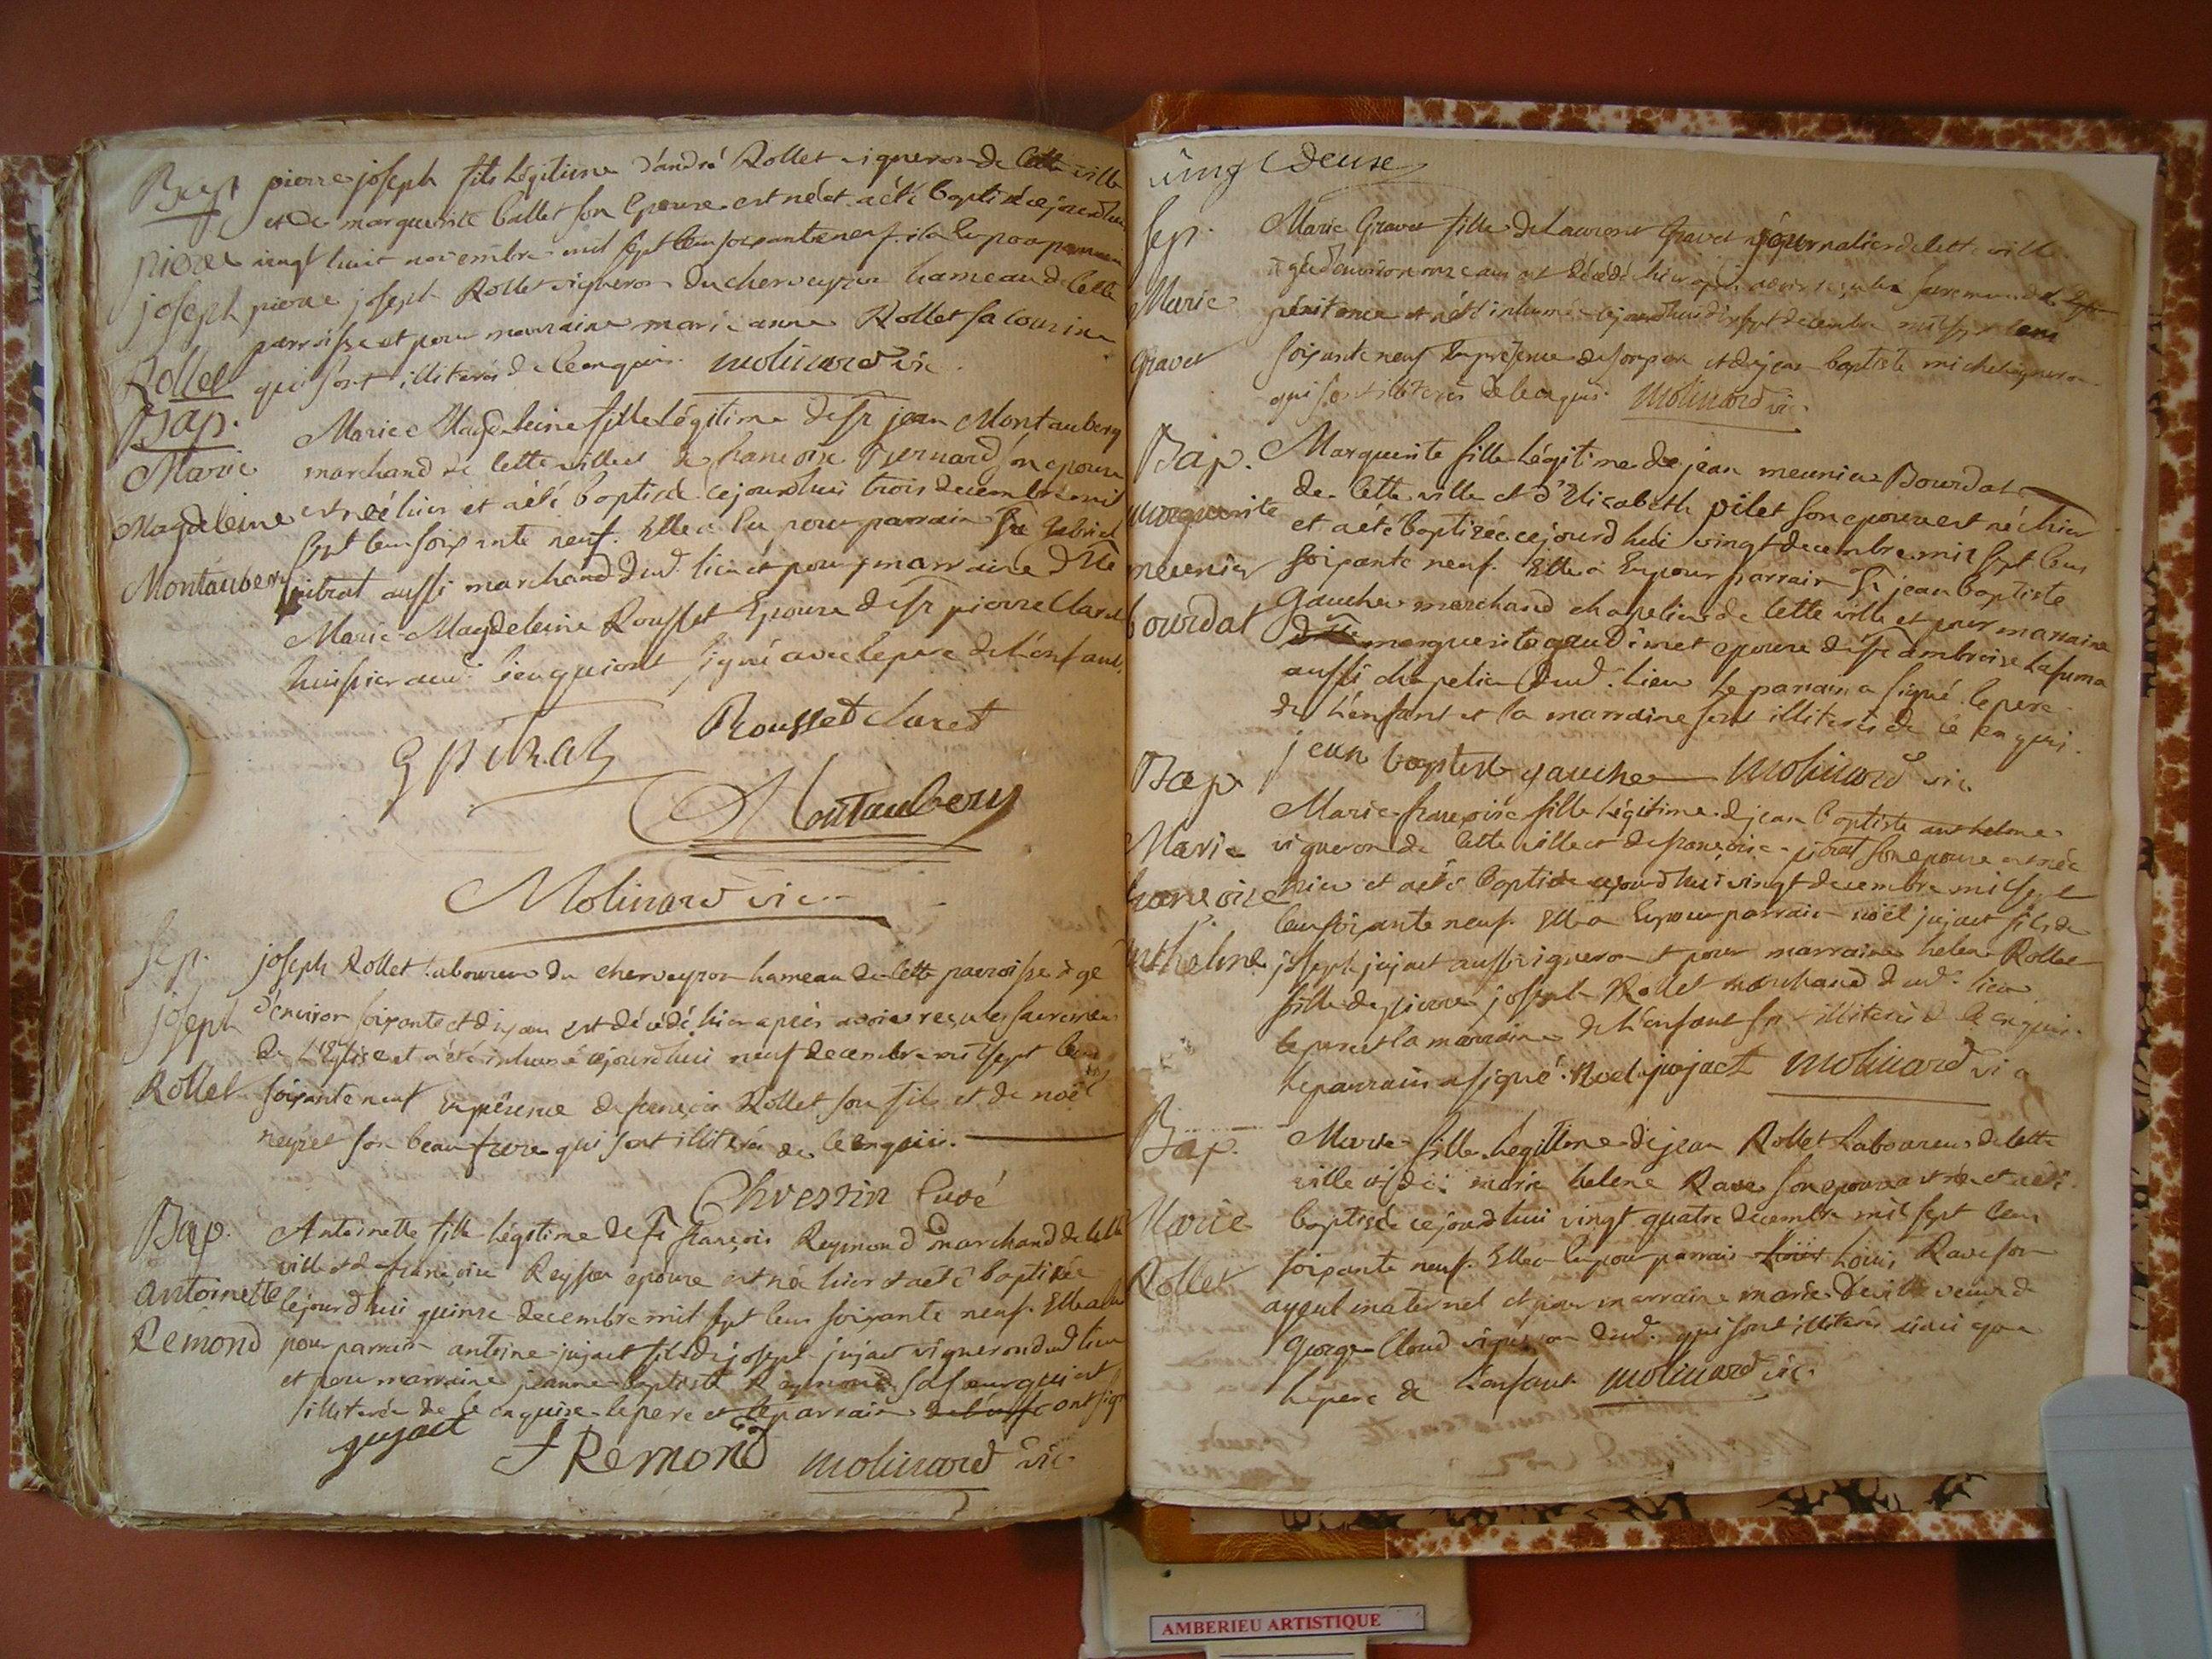 Bap
pierre joseph
Rollet
pierre joseph fils légitime d'andré Rollet vigneron de cette ville
et de marguerite ballet son epouse est né et a été baptisé cejourdhui
vingt huit novembre mil sept cens soixante neuf. il a Eu pour parrain
pierre joseph Rollet vigneron du cherveyron hameau de cette
parroisse et pour marraine marie anne Rollet sa cousine
qui sont illiterés de ce enquis. molinard vic.
Bap.
Marie
Magdeleine
Montaubery
Marie Magdeleine fille légitime de sr jean Montaubery
marchand de cette ville et de françoise Bernard son epouse
est née hier et a été baptisée cejourdhui trois decembre mil
sept cens soixante neuf. Elle a Eu pour parrain Sr gabriel
pitrat aussi marchand dud. lieu et pour marraine dlle
Marie Magdeleine Rousset Epouse de sr pierre Claret
huissier aud. lieu qui ont signé avec le pere de l'enfant.
G pitrat Rousset Claret
Montaubery
Molinard vic
Sep.
joseph
Rollet
joseph Rollet laboureur du cherveyron hameau de cette parroisse agé
d'environ soixante et dix ans est décédé hier après avoir reçu les sacremens
de L'Eglise et a été inhumé cejourdhui neuf decembre mil sept cens
soixante neuf En présence de françois Rollet son fils et de noël
neyret son beau frere qui sont illiterés de ce enquis.
Chvessin Curé
Bap.
Antoinette
Remond
Antoinette fille légitime de sr françois Reymond marchand de cette
ville et de françoise Reyssa epouse est née hier et a été baptisée
cejourdhui quinze decembre mil sept cens soixante neuf. Elle a eu
pour parrain antoine jujact fils de joseph jujact vigneron dud lieu
et pour marraine jeanne baptiste Reymond sa soeur qui est
illiterée de ce enquise le pere et le parrain ont signé
jujact F Remond molinard vic.
vingt deuxe
Sep.
Marie
Gravet
Marie Gravet fille de Laurent Gravet journalier de cette ville
agée d'environ onze ans est décédée hier après avoir reçu les sacremens de
pénitence et a été inhumée cejourdhui dix sept decembre mil sept cens
soixante neuf En présence de son pere et de jean baptiste michel vigneron
qui sont illiterés de ce enquis. Molinard vic.
Bap.
marguerite
meunier
bourdat
Marguerite fille légitime de jean meunier Bourdat
de cette ville et d'Elisabeth pilet son epouse est née hier
et a été baptisée cejourdhui vingt decembre mil sept cens
soixante neuf. Elle a Eu pour parrain Sr jean baptiste
Gaucher marchand chapelier de cette ville et pour marraine
marguerite gaudimet epouse de sr ambroise Lafuma
aussi chapelier dud. lieu Le parrain a signé le pere
de L'enfant et la marraine sont illiterés de ce enquis.
jean baptiste gaucher Molinard vic.
Bap
Marie
françoise
anthelme
Marie françoise fille légitime de jean baptiste anthelme
vigneron de cette ville et de françoise pitrat son epouse est née
hier et a été baptisée cejourdhui vingt decembre mil sept
cens soixante neuf. Elle a Eu pour parrain noël jujact fils de
joseph jujact aussi vigneron et pour marraine helene Rollet
fille de pierre joseph Rollet marchand dud. lieu
le pere et la marraine de L'enfant sont illiterés de ce enquis.
le parrain a signé. Noel jujact molinard vic
Bap.
Marie
Rollet
Marie fille Légitime de jean Rollet Laboureur de cette
ville et de marie helene Rave son epouse est née et a été
baptisée cejourdhui vingt quatre decembre mil sept cens
soixante neuf. Elle a Eu pour parrain Louis Rave son
ayeul maternel et pour marraine marie Deville veuve de
George Cloud vigneron dud. qui sont illiterés ainsi que
le pere de L'enfant molinard vic.
AMBERIEU ARTISTIQUE